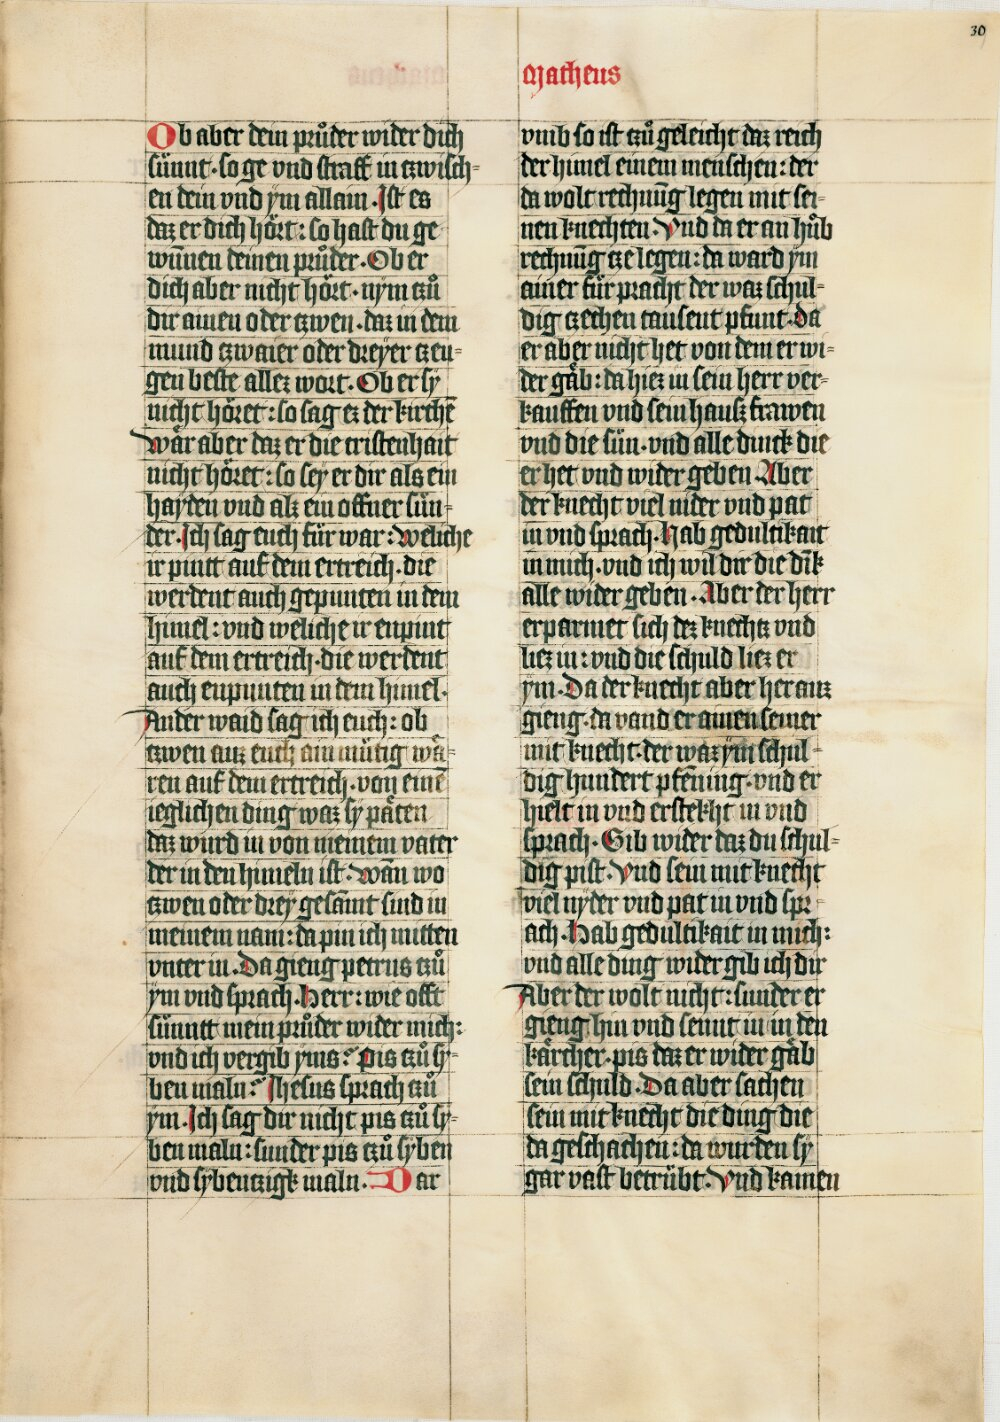 30
Matheus
Ob aber dein průder wider dich
sünnt·so ge vnd straff in tzwisch=
en dein vnd ym allain·Ist es
daz er dich hört:so hast du ge
wunnen deinen průder·Ob er
dich aber nicht hört·nym tzů
dir ainen oder tzwen·daz in dem
mund tzwaier oder dreyer tzeu=
gen beste allez wort·Ob er sy
nicht höret:so sag ez der kirchē
wär aber daz er die cristenhait
nicht höret:so sey er dir als ein
hayden vnd alz ein offner sün=
der·Ich sag euch für war:weliche
ir pintt auf dem ertreich·die
werdent auch gepunten in dem
himel:vnd weliche ir enpint
auf dem ertreich·die werdent
auch enpunten in dem himel·
Ander waid sag ich euch:ob
tzwen auz euch ain mütig wä=
ren auf dem ertreich·von einē
ieglichen ding waz sy päten
daz wurd in von meinem vater
der in den himeln ist·wān wo
tzwen oder drey gesāmt sind in
meinem nam:da pin ich mitten
vnter in·Da gieng petrus tzů
ym vnd sprach·Herr:wie offt
sünntt mein průder wider mich:
vnd ich vergib yms?Pis tzů sy=
ben maln?Ihesus sprach tzů
ym·Ich sag dir nicht pis tzů sy=
ben maln:sunder pis tzů syben
vnd sybentzigk maln·Dar
vmb so ist tzů geleicht daz reich
der himel einem menschen:der
da wolt rechnūg legen mit sei=
nen knechten·Vnd da er an hůb
rechnūg tze legen:da ward ym
ainer für pracht der waz schul=
dig tzechen tausent pfunt·Da
er aber nicht het von dem er wi=
der gäb:da hiez in sein herr ver=
kauffen vnd sein hausz frawen
vnd die sün·vnd alle dinck die
er het vnd wider geben·Aber
der knecht viel nider vnd pat
in vnd sprach·Hab gedultikait
in mich·vnd ich wil dir die dīk
alle wider geben·Aber der herr
erparmet sich dez knechtz vnd
liez in:vnd die schuld liez er
ym·Da der knecht aber her auz
gieng·da vand er ainen seiner
mit knecht·der waz ym schul=
dig hundert pfēning·vnd er
hielt in vnd erstekht in vnd
sprach·Gib wider daz du schul=
dig pist·Vnd sein mit knecht
viel nyder vnd pat in vnd spr=
ach·Hab gedultikait in mich:
vnd alle ding wider gib ich dir
Aber der wolt nicht:sunder er
gieng hin vnd sennt in in den
kärcher·pis daz er wider gäb
sein schuld·Da aber sachen
sein mit knecht die ding die
da geschachen:da wurden sy
gar vast betrübt·Vnd kamen